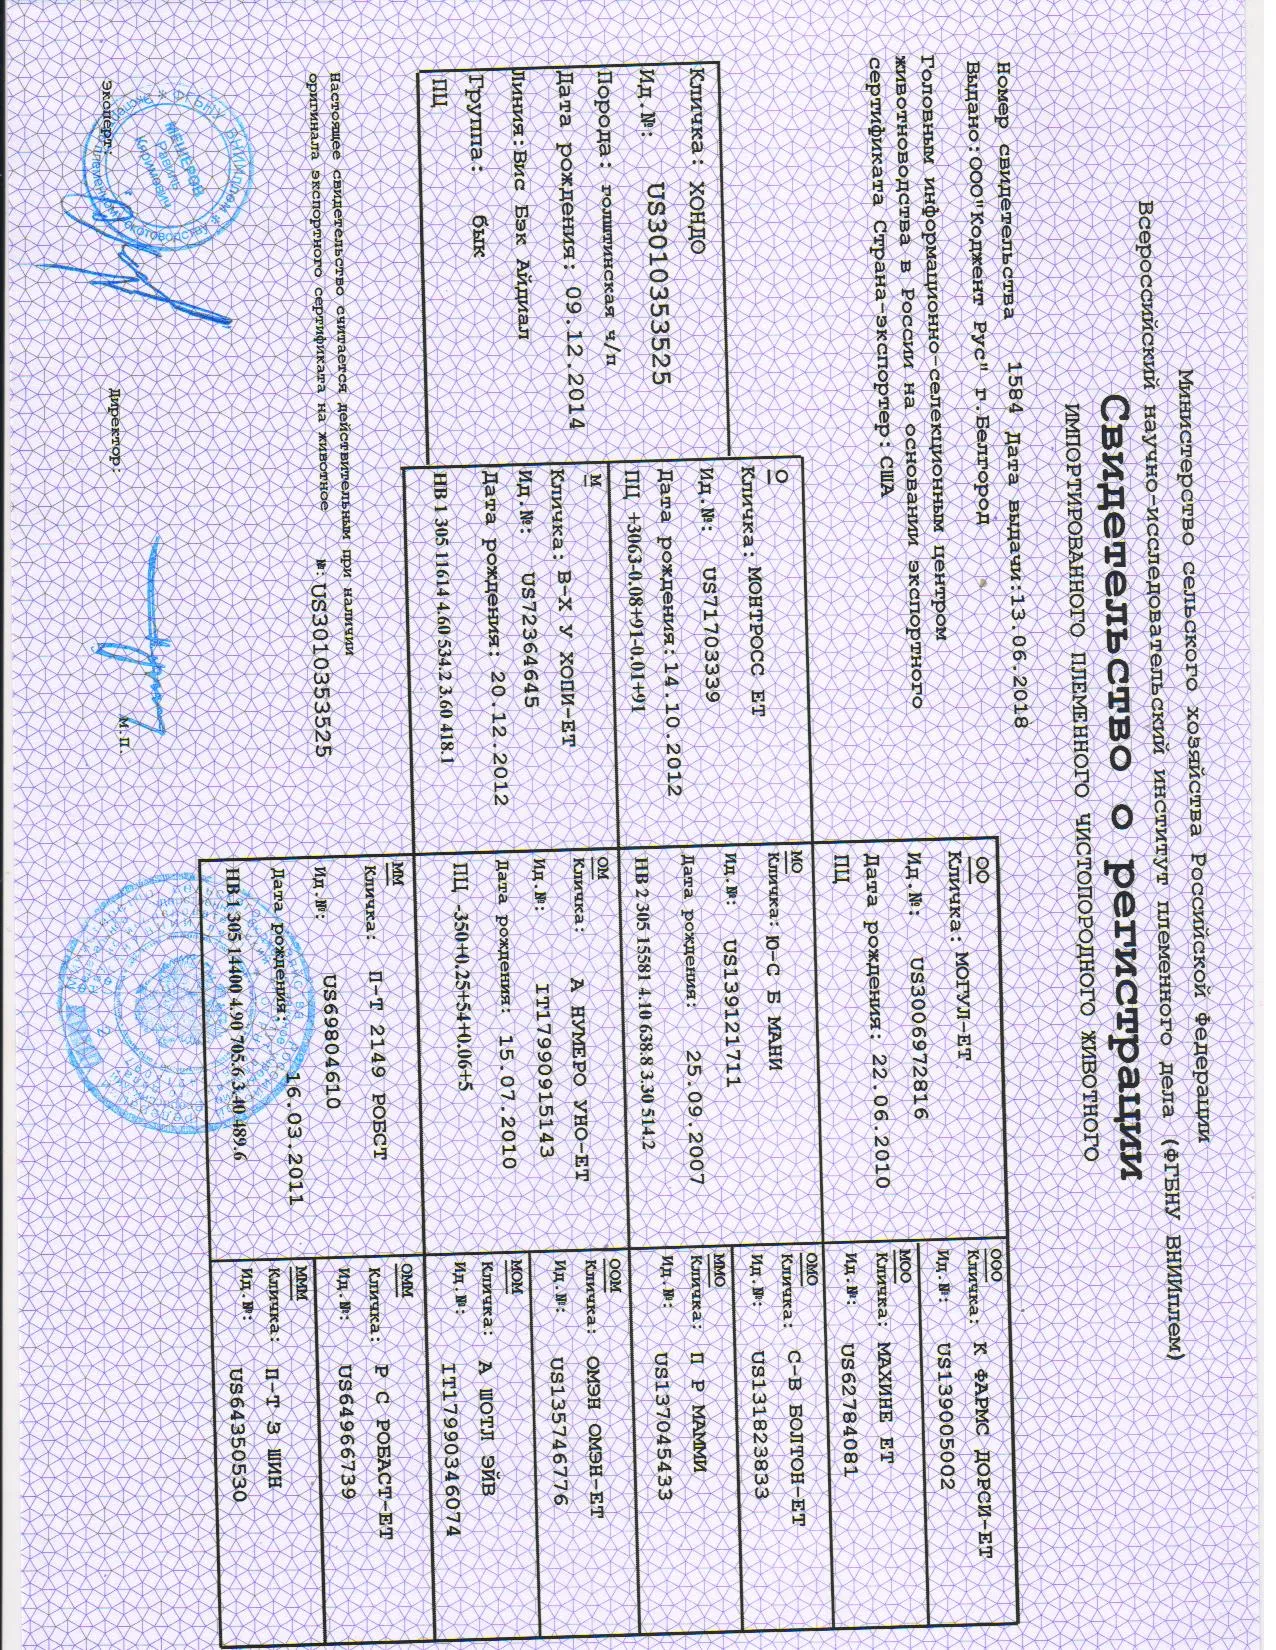 Министерство сельского хозяйства Российской Федерации
Всероссийский научно-исследовательский институт племенного дела (ФГБНУ ВНИИплем)
Свидетельство о регистрации
ИМПОРТИРОВАННОГО ПЛЕМЕННОГО ЧИСТОПОРОДНОГО ЖИВОТНОГО
Номер свидетельства 1584 Дата выдачи:13.06.2018
Выдано:ООО"Коджент Рус" г.Белгород
Головным информационно-селекционным центром
животноводства в России на основании экспортного
сертификата Страна-экспортер: США
Кличка: ХОНДО
Ид.№: US3010353525
Порода: голштинская ч/п
Дата рождения: 09.12.2014
Линия:Вис Бэк Айдиал
Группа: бык
ПЦ
О
Кличка: МОНТРОСС ЕТ
Ид.№: US71703339
Дата рождения:14.10.2012
ПЦ +3063-0.08+91-0.01+91
М
Кличка: В-Х У ХОПИ-ЕТ
Ид.№: US72364645
Дата рождения: 20.12.2012
НВ 1 305 11614 4.60 534.2 3.60 418.1
ОО
Кличка: МОГУЛ-ЕТ
Ид.№: US3006972816
Дата рождения: 22.06.2010
ПЦ
МО
Кличка: Ю-С Б МАНИ
Ид.№: US139121711
Дата рождения: 25.09.2007
НВ 2 305 15581 4.10 638.8 3.30 514.2
ОМ
Кличка: А НУМЕРО УНО-ЕТ
Ид.№: IT17990915143
Дата рождения: 15.07.2010
ПЦ -350+0.25+54+0.06+5
ММ
Кличка: П-Т 2149 РОБСТ
Ид.№: US69804610
Дата рождения: 16.03.2011
НВ 1 305 14400 4.90 705.6 3.40 489.6
ООО
Кличка: К ФАРМС ДОРСИ-ЕТ
Ид.№: US139005002
МОО
Кличка: МАХИНЕ ЕТ
Ид.№: US62784081
ОМО
Кличка: С-В БОЛТОН-ЕТ
Ид.№: US131823833
ММО
Кличка: П Р МАММИ
Ид.№: US137045433
ООМ
Кличка: ОМЭН ОМЭН-ЕТ
Ид.№: US135746776
МОМ
Кличка: А ШОТЛ ЭЙВ
Ид.№: IT17990346074
ОММ
Кличка: Р С РОБАСТ-ЕТ
Ид.№: US64966739
МММ
Кличка: П-Т З ШИН
Ид.№: US64350530
Настоящее свидетельство считается действительным при наличии
оригинала экспортного сертификата на животное №: US3010353525
Эксперт: Директор: М.П.
МЕЩЕРОВ
Равиль
Каримович